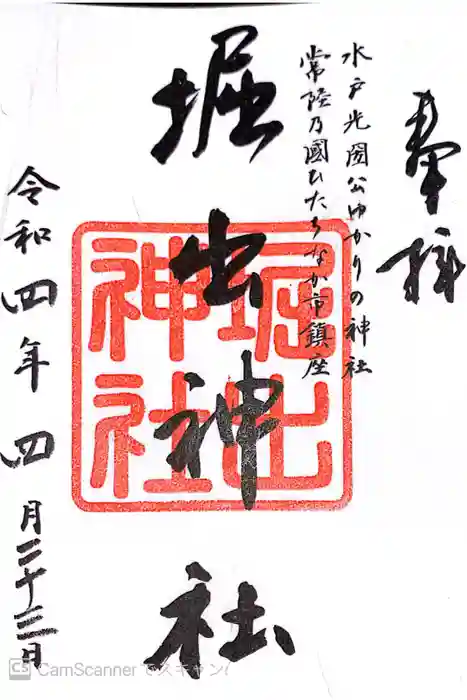 奉拝
水戸光圀公ゆかりの神社
常陸乃國ひたちなか市鎮座
堀出神社
堀出神社
令和四年四月二十三日
CS CamScanner でスキャン